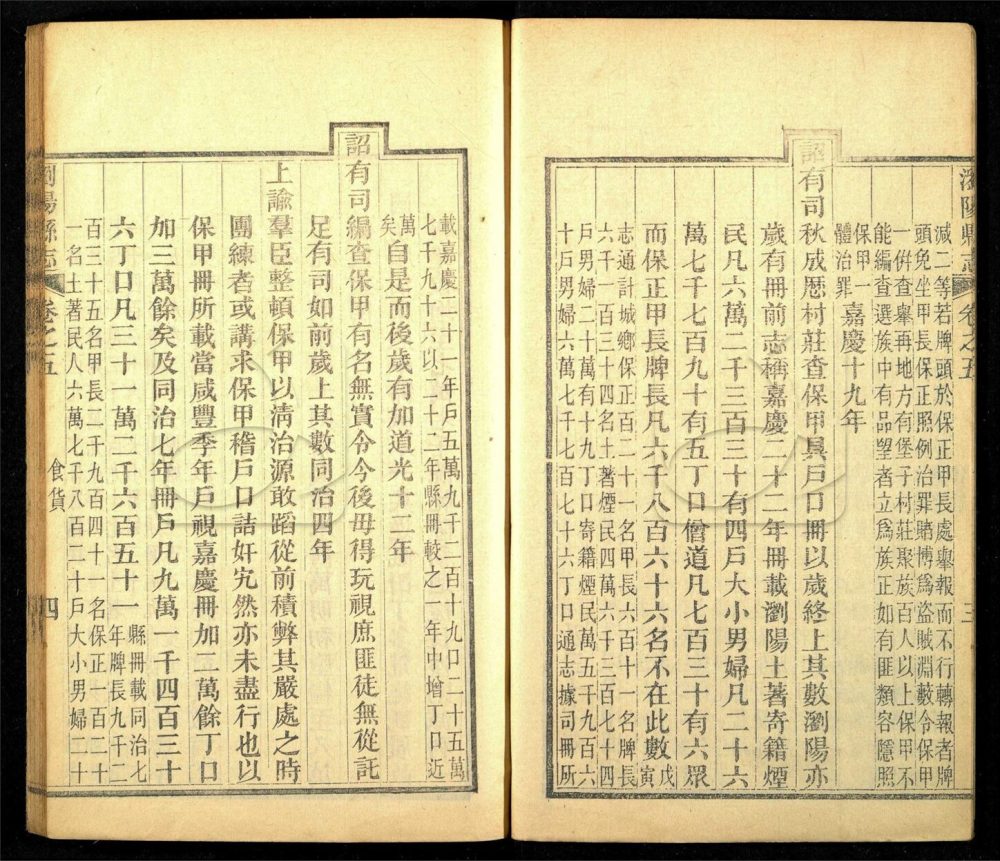 瀏陽縣志 卷之五 三
減二等若牌頭於保正甲長處舉報而不行轉報者牌
頭免坐甲長保正照例治罪賭博爲盜賊淵藪令保甲
一倂查舉再地方有堡子村莊聚族百人以上保甲不
能編查選族中有品望者立爲族正如有匪類容隱照
保甲一
體治罪
嘉慶十九年
詔有司秋成厯村莊查保甲具戶口冊以歲終上其數瀏陽亦
歲有冊前志稱嘉慶二十二年冊載瀏陽土著寄籍煙
民凡六萬二千三百三十有四戶大小男婦凡二十六
萬七千七百九十有五丁口僧道凡七百三十有六眾
而保正甲長牌長凡六千八百六十六名不在此數
戊寅
志通計城鄉保正百二十一名甲長六百十一名牌長
六千一百三十四名土著煙民四萬六千三百七十四
戶男婦二十萬有十九丁口寄籍煙民萬五千九百六
十戶男婦六萬七千七百七十六丁口通志據司冊所
載嘉慶二十一年戶五萬九千二百十九口二十五萬
七千九十六以二十二年縣冊較之一年中增丁口近
萬
矣
自是而後歲有加道光十二年
詔有司編查保甲有名無實令今後毋得玩視庶匪徒無從託
足有司如前歲上其數同治四年
上諭羣臣整頓保甲以淸治源敢蹈從前積弊其嚴處之時
團練者或講求保甲稽戶口詰奸宄然亦未盡行也以
保甲冊所載當咸豐季年戶視嘉慶冊加二萬餘丁口
加三萬餘矣及同治七年冊戶凡九萬一千四百三十
六丁口凡三十一萬二千六百五十一
縣冊載同治七
年牌長九千二
百三十五名甲長二千九百四十一名保正一百二十
一名土著民人六萬七千八百二十戶大小男婦二十
瀏陽縣志 卷之五 食貨 四